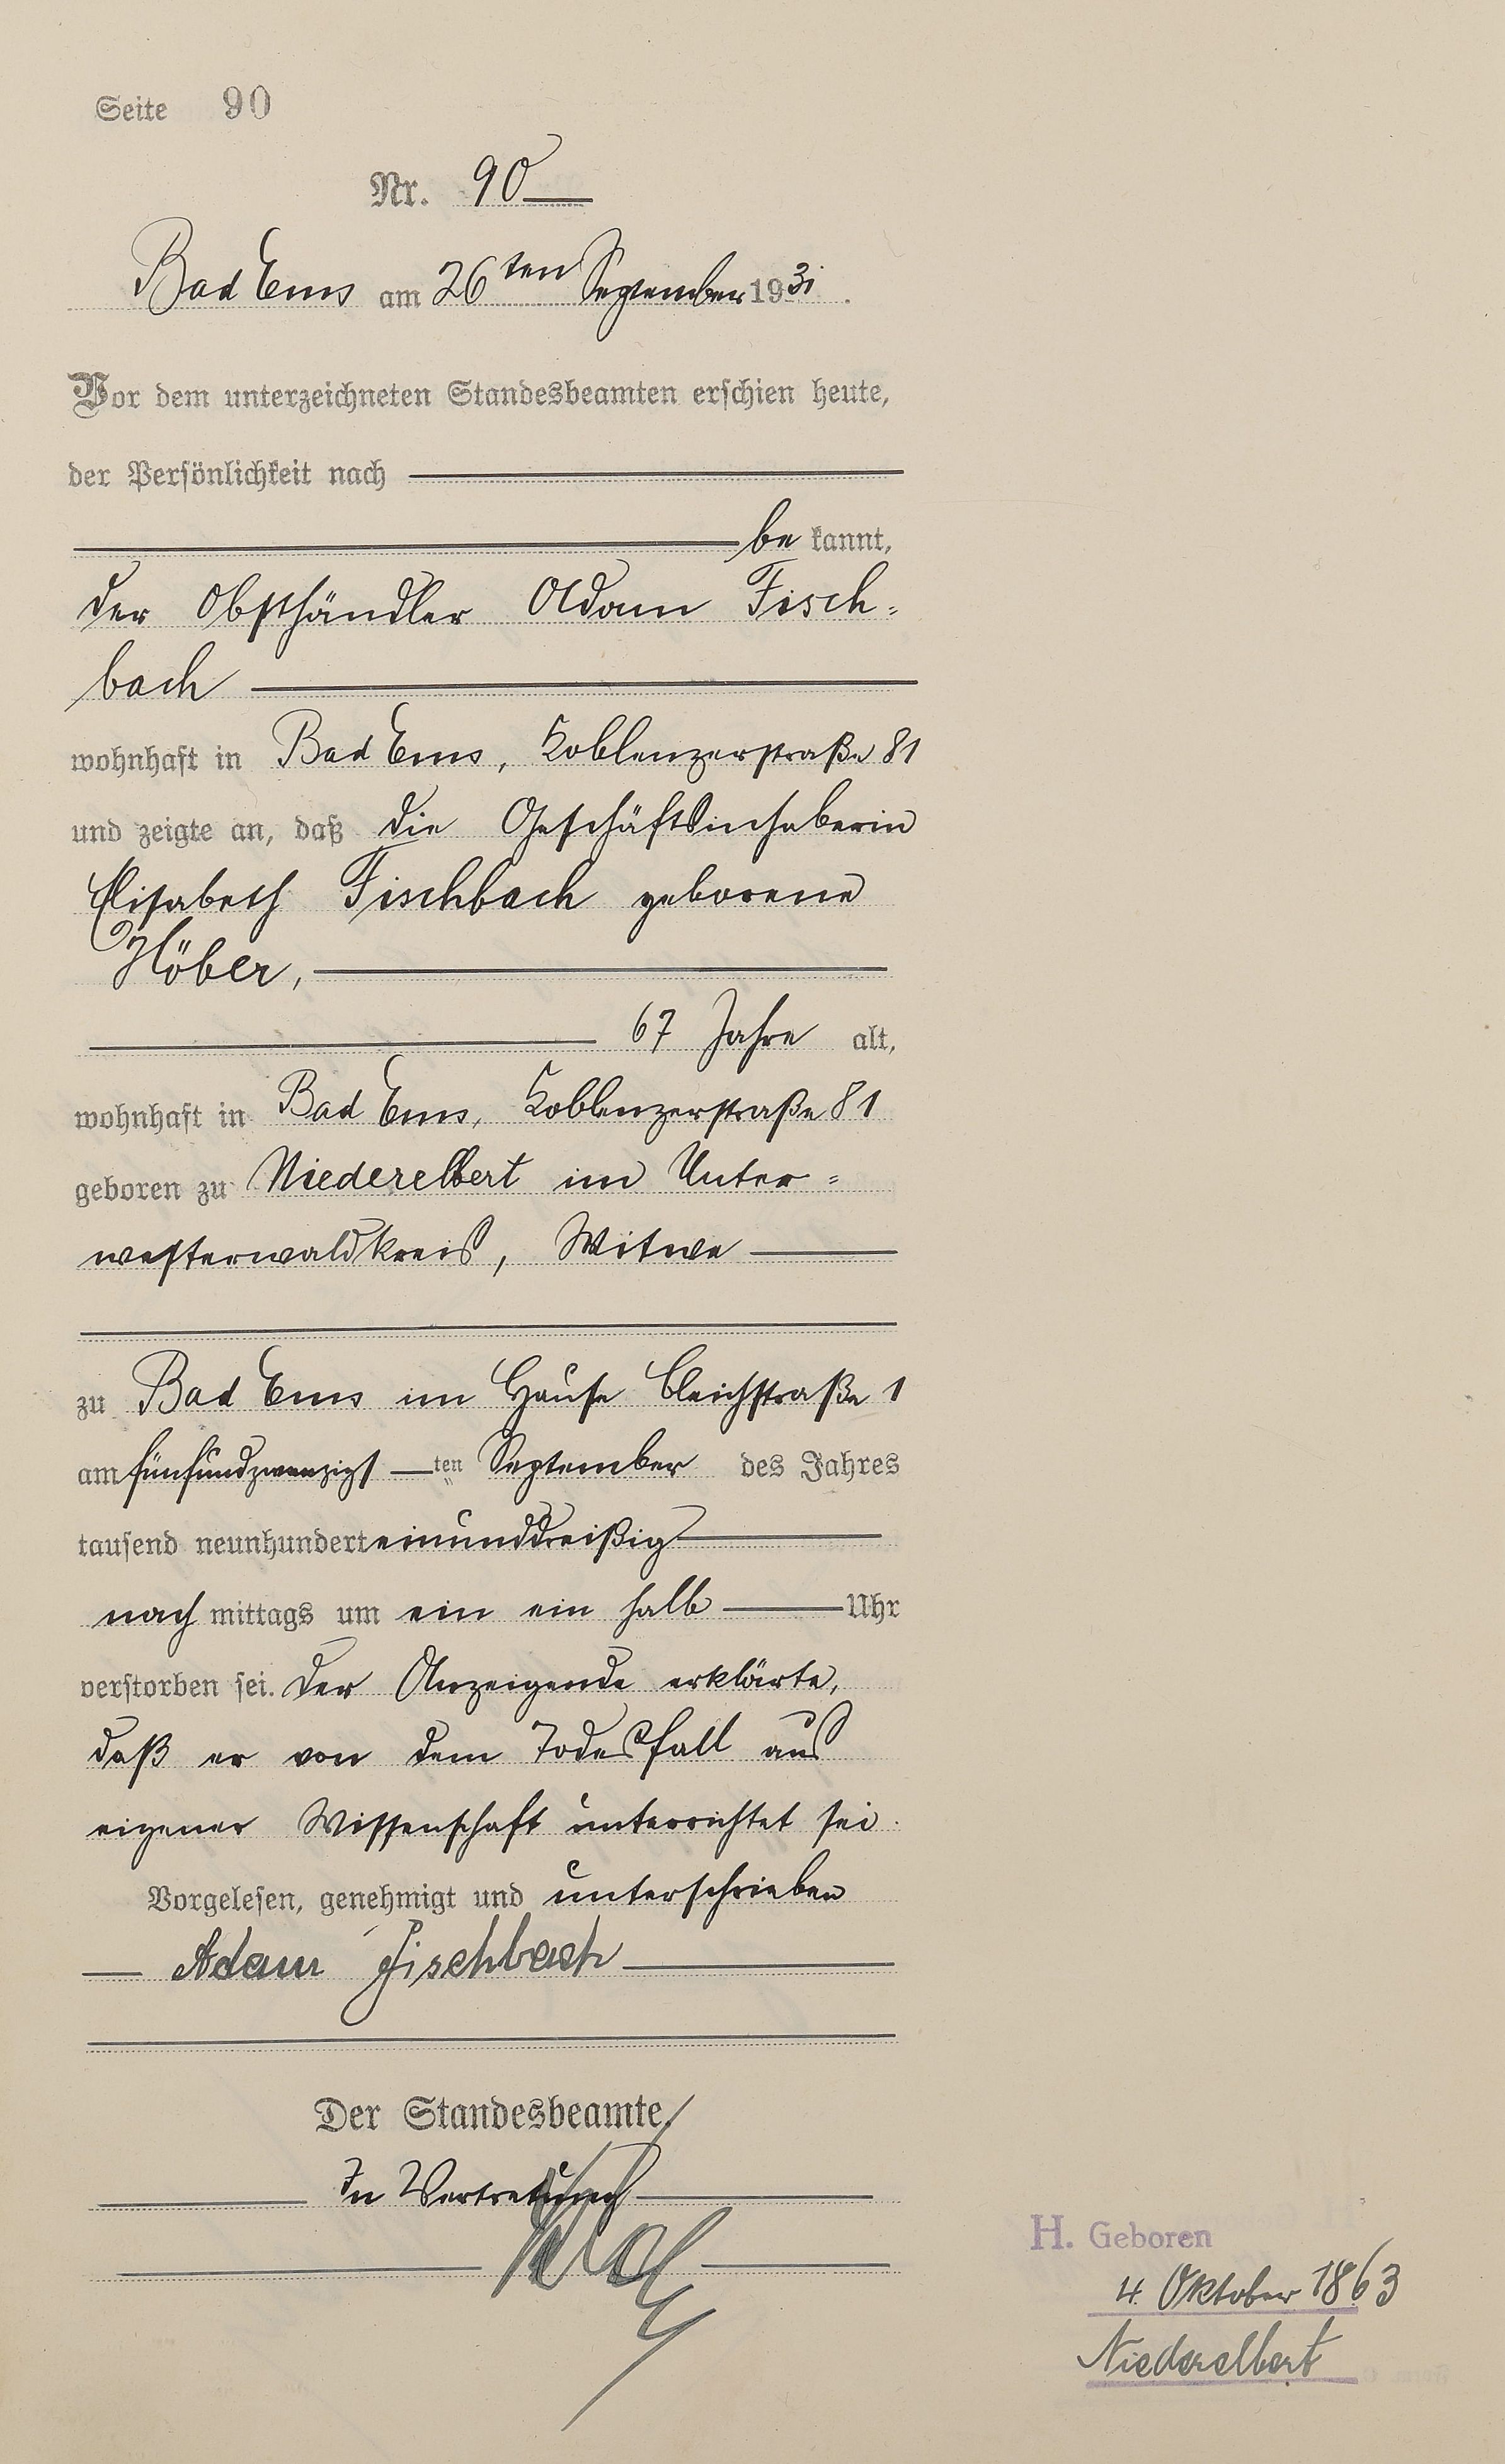 Seite 90
Nr. 90
Bad Ems am 26ten September 1931.
Vor dem unterzeichneten Standesbeamten erschien heute,
der Persönlichkeit nach
be kannt,
der Obsthändler Adam Fisch=
bach
wohnhaft in Bad Ems, Koblenzerstraße 81
und zeigte an, daß die Geschäftsinhaberin
Elisabeth Fischbach geborene
Höber,
67 Jahre alt,
wohnhaft in Bad Ems, Koblenzerstraße 81
geboren zu Niederelbert im Unter=
westerwaldkreis, Witwe
zu Bad Ems im Hause Bleichstraße 1
am fünfundzwanzigsten September des Jahres
tausend neunhundert einunddreißig
nach mittags um ein ein halb Uhr
verstorben sei. Der Anzeigende erklärte,
daß er von dem Todesfall aus
eigener Wissenschaft unterrichtet sei.
Vorgelesen, genehmigt und unterschrieben
Adam Fischbach
Der Standesbeamte.
In Vertretung
H. Geboren
4. Oktober 1863
Niederelbert